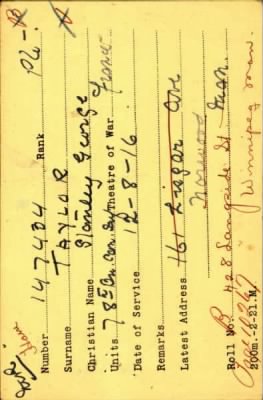 Number 147434 Rank Pte B
Surname TAYLOR
Christian Name Stanley George
Units 78th Bn. Can Inf Theatre of War France
Date of Service 12-8-16
Remarks
Latest Address 161 Lisgar Ave
Norwood Man
Roll No. B 428 Langside St
200m.-2-21.M. Winnipeg Man.